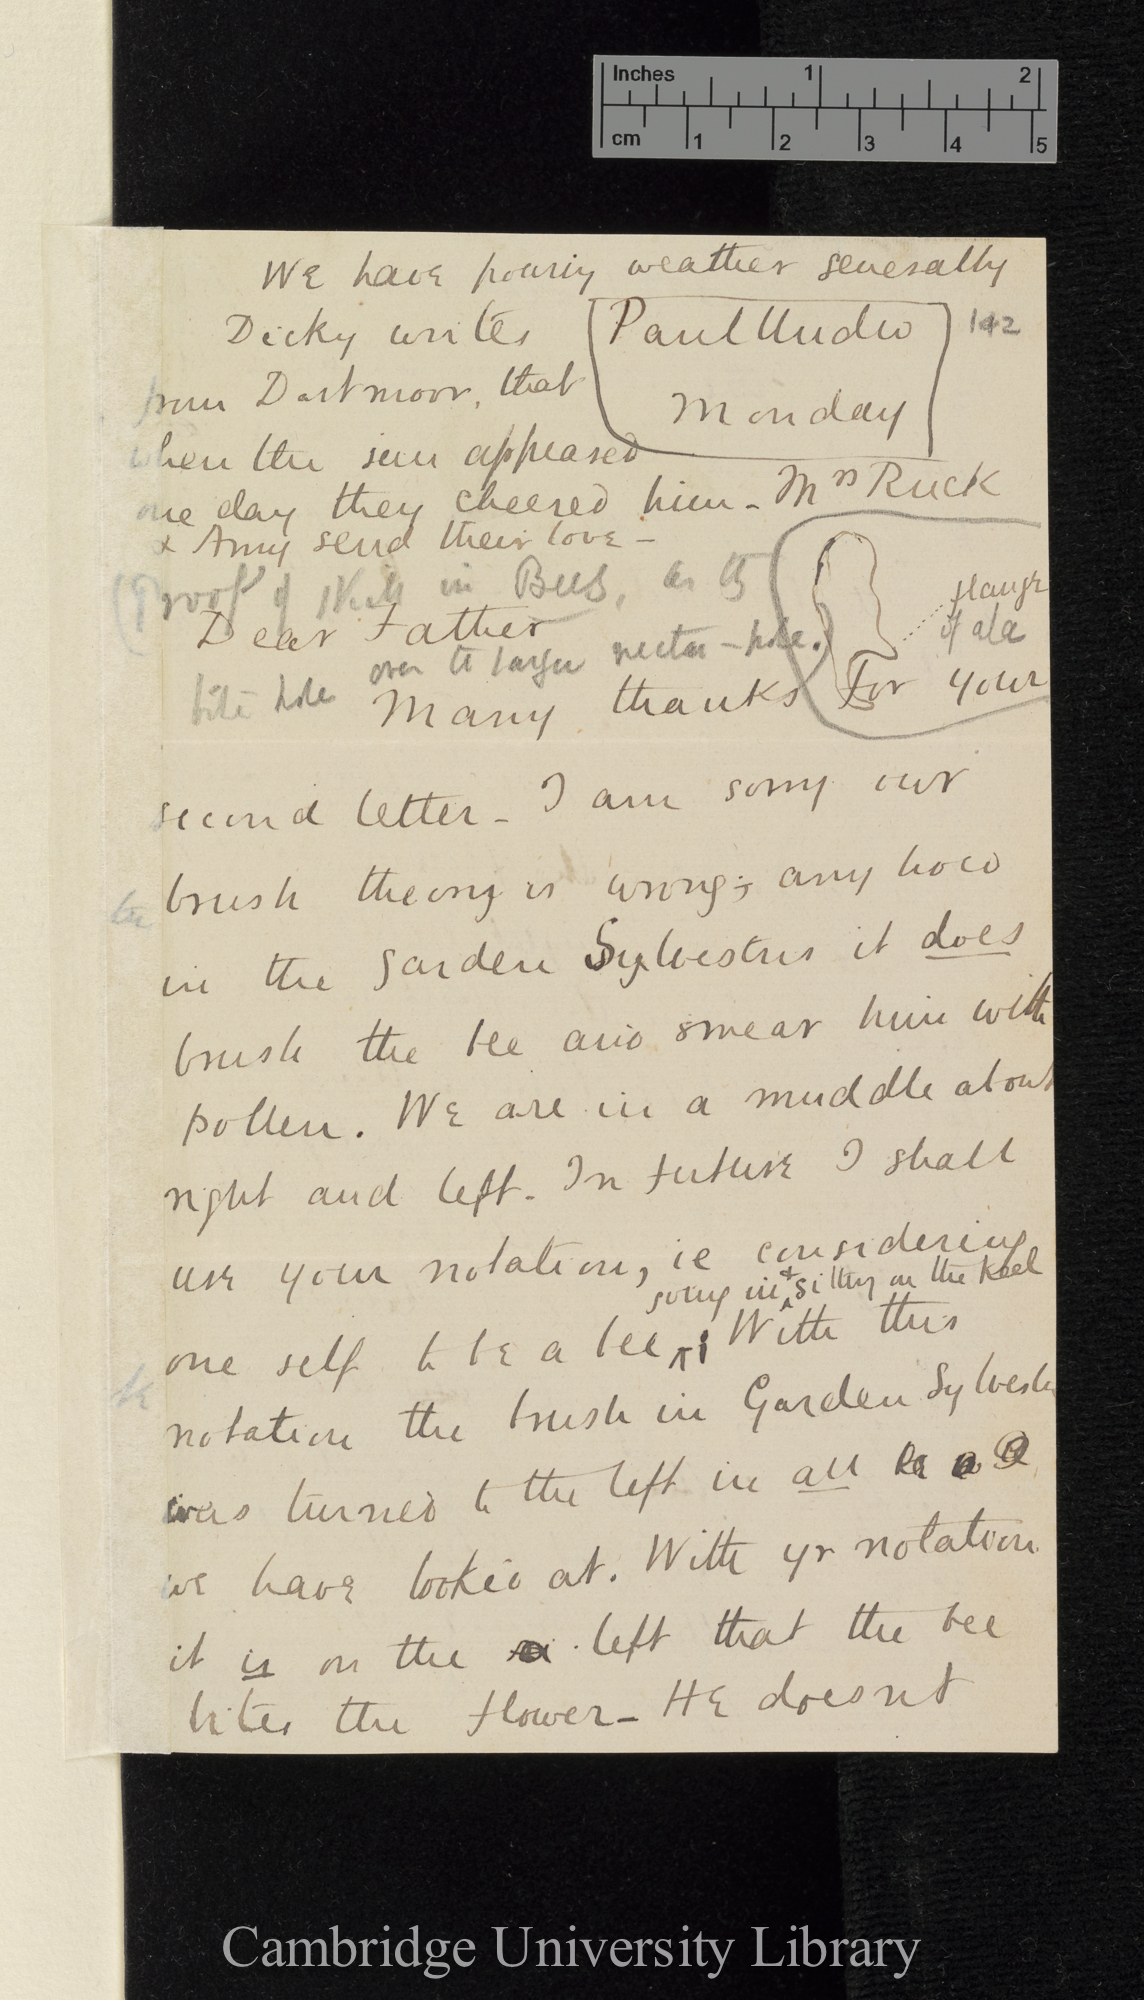 Inches 1 2
cm 1 2 3 4 5
We have pouring weather generally
Dicky writes
from Dartmoor, that
when the sun appeared
one day they cheered him - Mrs Ruck
& Amy send their love -
Paul Uudw
Monday
142
(Proof of skill in Bees, as they
bite hole over the larger nectar-hole.
flange
of ala
Dear Father
Many thanks for your
second letter - I am sorry our
brush theory is wrong; any how
in the garden Sylvestris it does
brush the bee and smear him with
pollen. We are in a muddle about
right and left. In future I shall
use your notation, ie considering
going in & sitting on the keel
one self to be a bee; With this
notation the brush in Garden Sylvestris
was turned to the left in all
we have looked at. With yr notation
it is on the left that the bee
bites the flower - He doesnt
Cambridge University Library